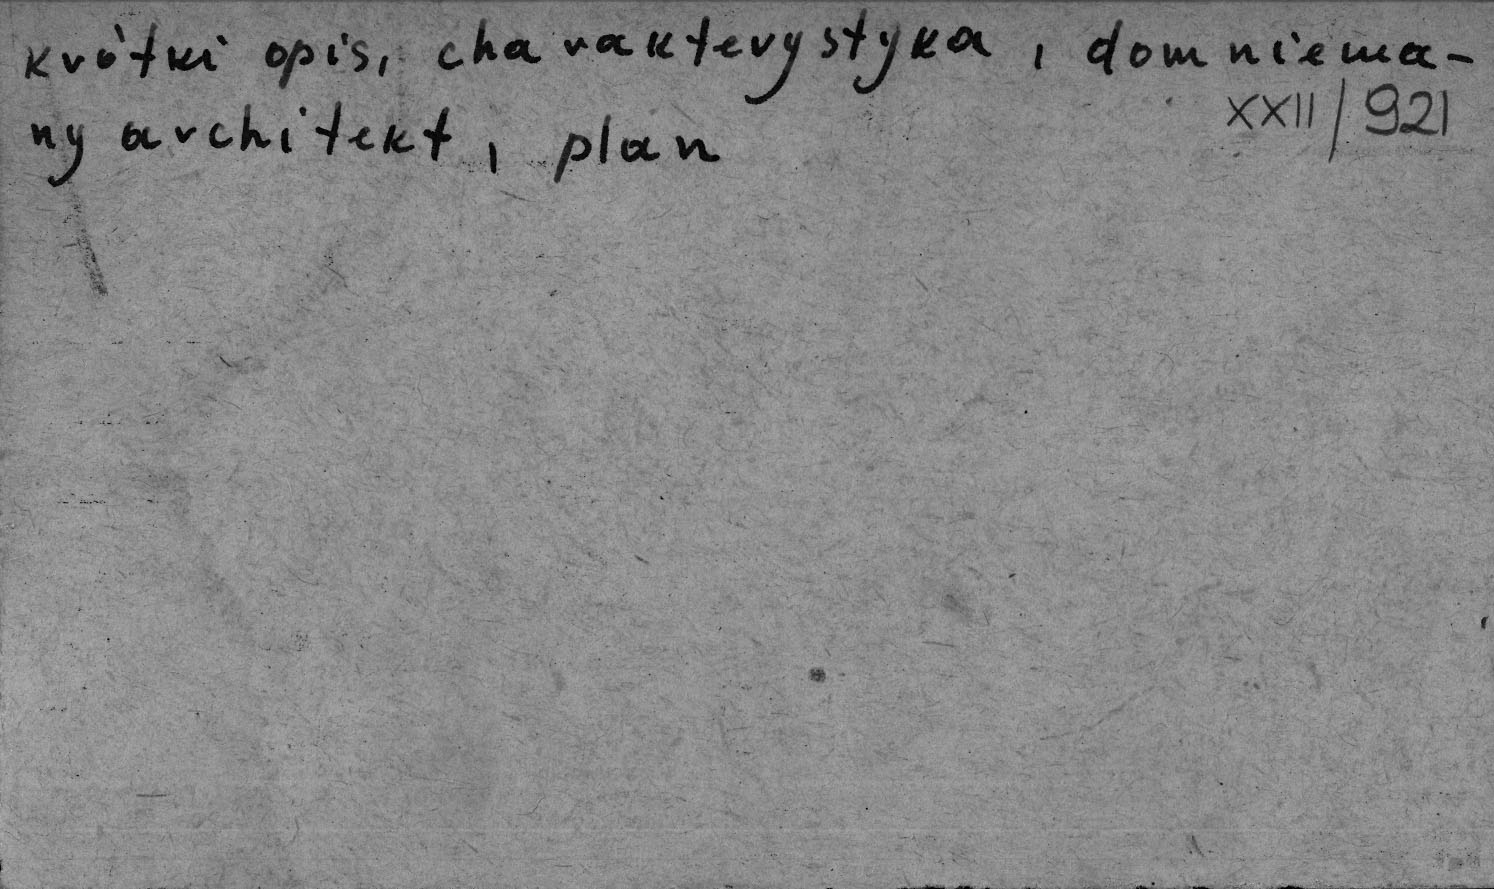 krótki opis, charakterystyka, domniema-
ny architekt, plan
XXII/921